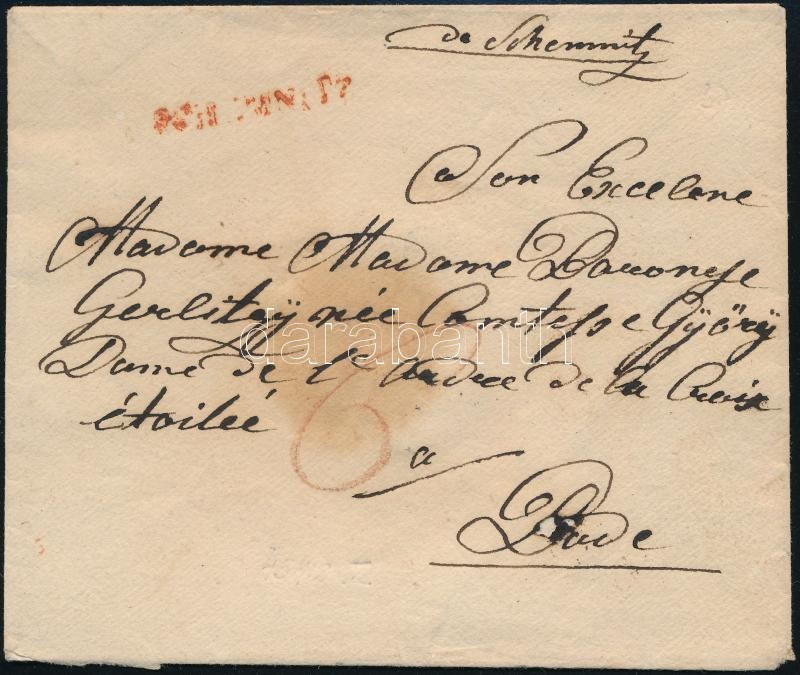 de Schemnitz
SCHEMNITZ
a Son Excelene
Madame Madame Baronese
Gerlitzÿ née Comtesse Győrÿ
Dame de l'ordre de la Croix
étoileé
a
Bude
darabanth